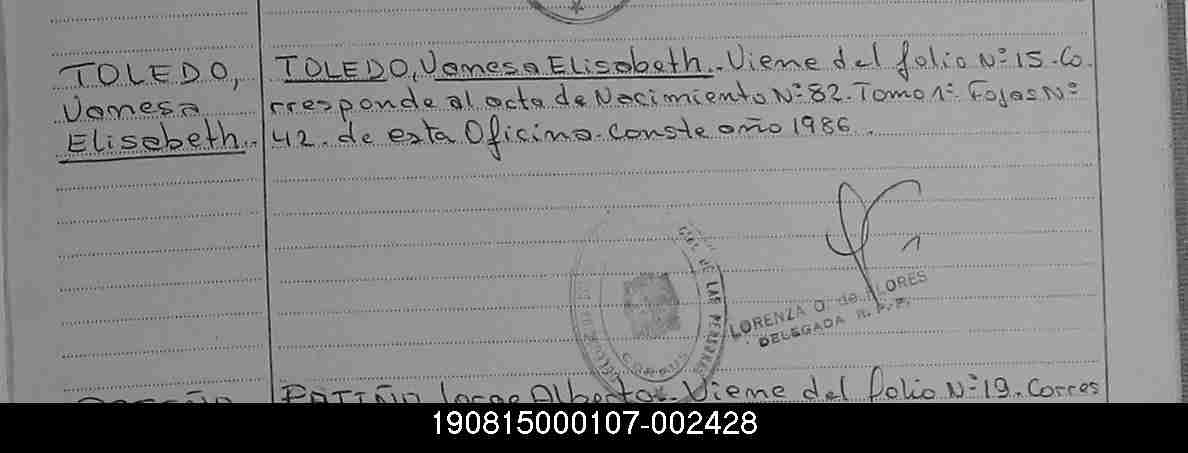 TOLEDO,
Vanesa
Elisabeth.
TOLEDO, Vanesa Elisabeth. Viene del folio Nº 15. Co
rresponde al acta de Nacimiento Nº 82. Tomo 1º Fojas Nº
42. de esta Oficina. Conste año 1986.
DE LAS PERSONAS
LORENZA O. de FLORES
DELEGADA R. P. P.
PATIÑO Jorge Alberto. Viene del folio Nº 19. Corres
190815000107-002428